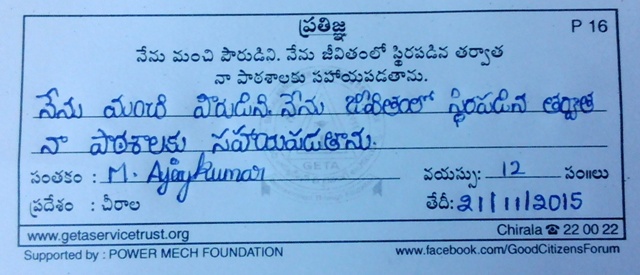 ప్రతిజ్ఞ P 16
నేను మంచి పౌరుడిని. నేను జీవితంలో స్థిరపడిన తర్వాత
నా పాఠశాలకు సహాయపడతాను.
నేను మంచి పౌరుడిని. నేను జీవితంలో స్థిరపడిన తర్వాత
నా పాఠశాలకు సహాయపడతాను.
సంతకం : M. Ajaykumar వయస్సు: 12 సం॥లు
ప్రదేశం : చీరాల తేదీ: 21/11/2015
www.getaservicetrust.org Chirala ☎ 22 00 22
Supported by : POWER MECH FOUNDATION www.facebook.com/GoodCitizensForum